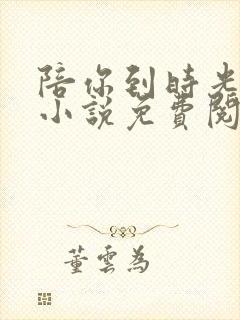 陪你到時光
小說免費閱
董雲為